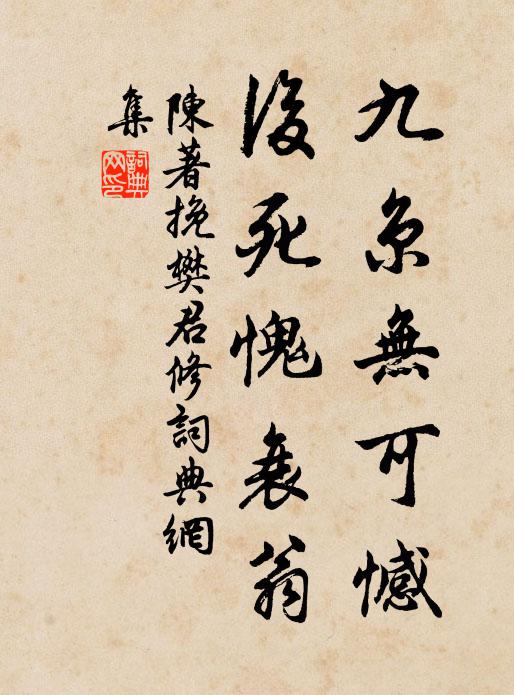 九京無可憾
後死愧衰翁
陳著挽樊君修詞典網
集
詞典網印